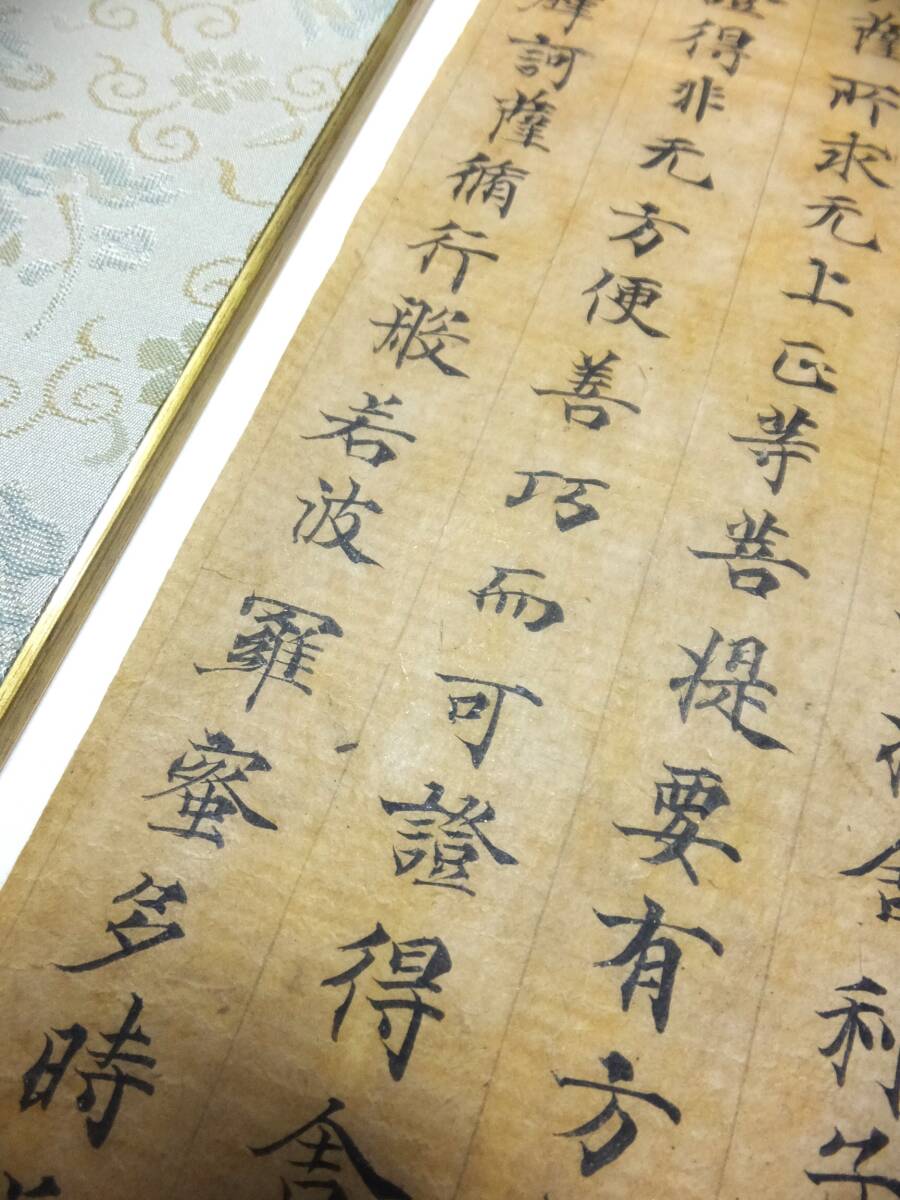 舍利子
薩所求无上正等菩提要有方
證得非无方便善巧而可證得舍
摩訶薩脩行般若波羅蜜多時